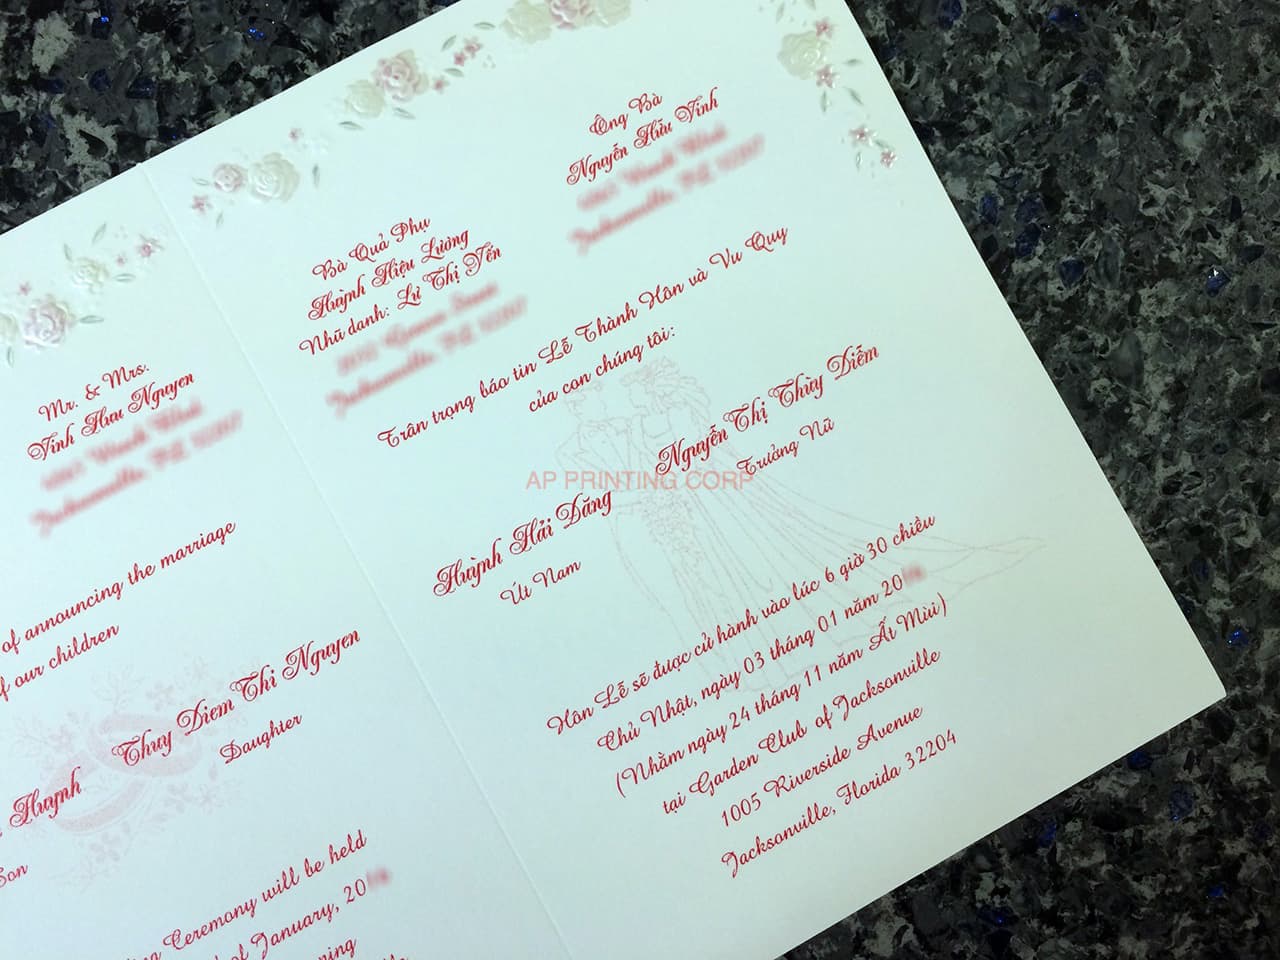 Mr. & Mrs.
Vinh Huu Nguyen
of announcing the marriage
of our children
Thuy Diem Thi Nguyen
Daughter
Huynh
Son
Ceremony will be held
of January, 20
Bà Quả Phụ
Huỳnh Hiệu Lương
Nhũ danh: Lư Thị Yến
Ông Bà
Nguyễn Hữu Vinh
Trân trọng báo tin Lễ Thành Hôn và Vu Quy
của con chúng tôi:
Huỳnh Hải Dăng
Út Nam
Nguyễn Thị Thùy Diễm
Trưởng Nữ
AP PRINTING CORP
Hôn Lễ sẽ được cử hành vào lúc 6 giờ 30 chiều
Chủ Nhật, ngày 03 tháng 01 năm 20
(Nhằm ngày 24 tháng 11 năm Ất Mùi)
tại Garden Club of Jacksonville
1005 Riverside Avenue
Jacksonville, Florida 32204